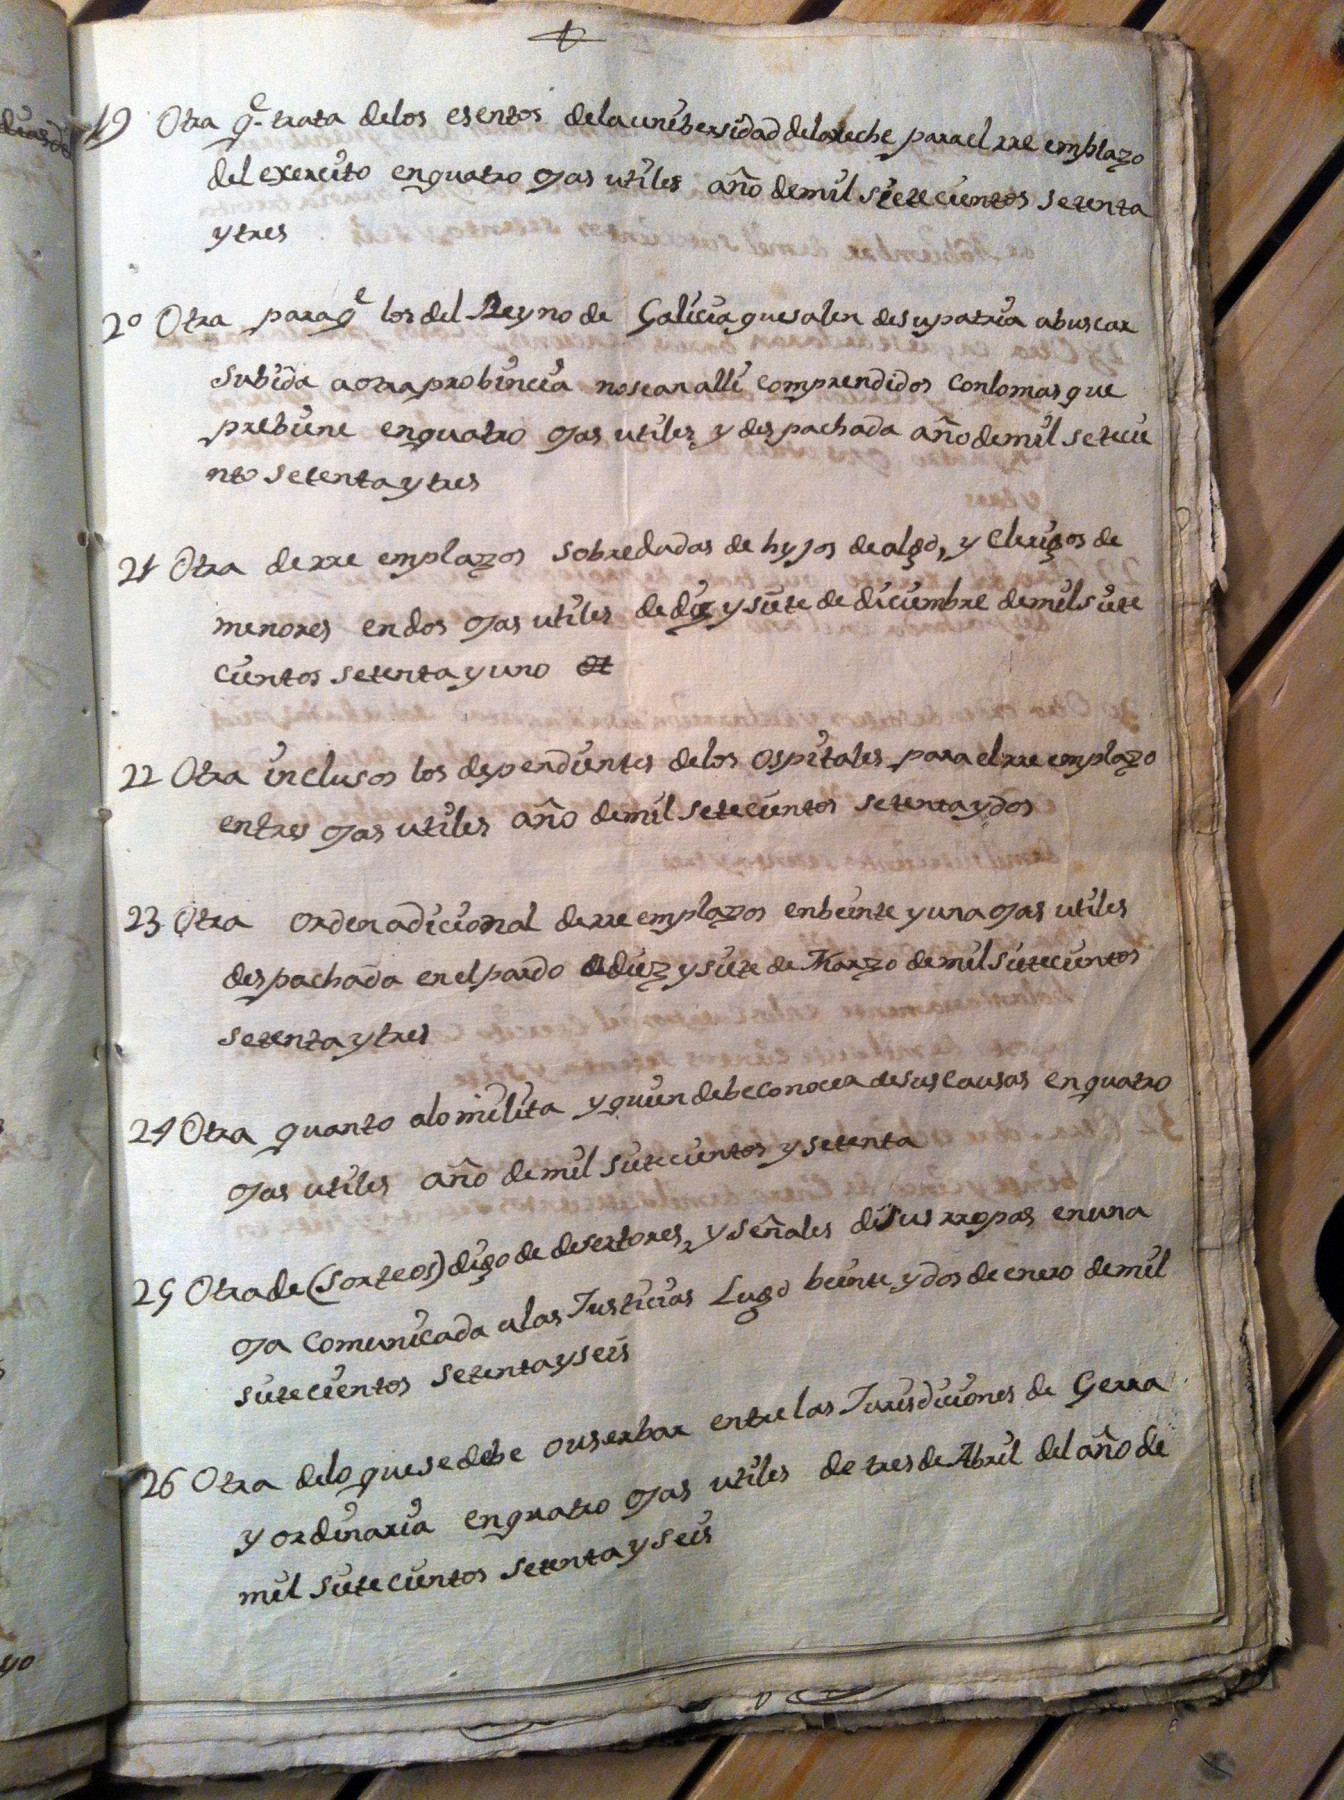 19 Otra qe trata delos esentos delaunibersidad del para el rre emplazo
del exercito enquatro ojas utiles año demil sietecientos setenta
ytres
20 Otra paraqe los del Reyno de Galicia quesalen desupatria abuscar
subida aotraprobincia nosean alli comprendidos conlomas que
prebiene enquatro ojas utiles y despachada año demil setecie
nto setenta y tres
21 Otra derre emplazos sobredadas de hyjos dealgo, y Clerigos de
menores endos ojas utiles dediez y siete de diciembre demilsiete
cientos setenta y uno
22 Otra inclusos los dependientes delos ospitales para elrre emplazo
entres ojas utiles año demil setecientos setenta ydos
23 Otra orden adicional derre emplazos enbeinte y una ojas utiles
despachada en el pardo diez y siete de Marzo de mil sietecientos
setenta y tres
24 Otra quanto alo milita y quien debe conocer desus causas enquatro
ojas utiles año de mil sietecientos y setenta
25 Otra de (sorteos) digo de desertores, y señales disus rropas en una
oja comunicada alas Justicias Lugo beinte y dos de enero demil
sietecientos setenta y seis
26 Otra delo que se debe ouserbar entre las Jurisdiciones de Gerra
y ordinaria enquatro ojas utiles de tres de Abril del año de
mil sietecientos setenta y seis